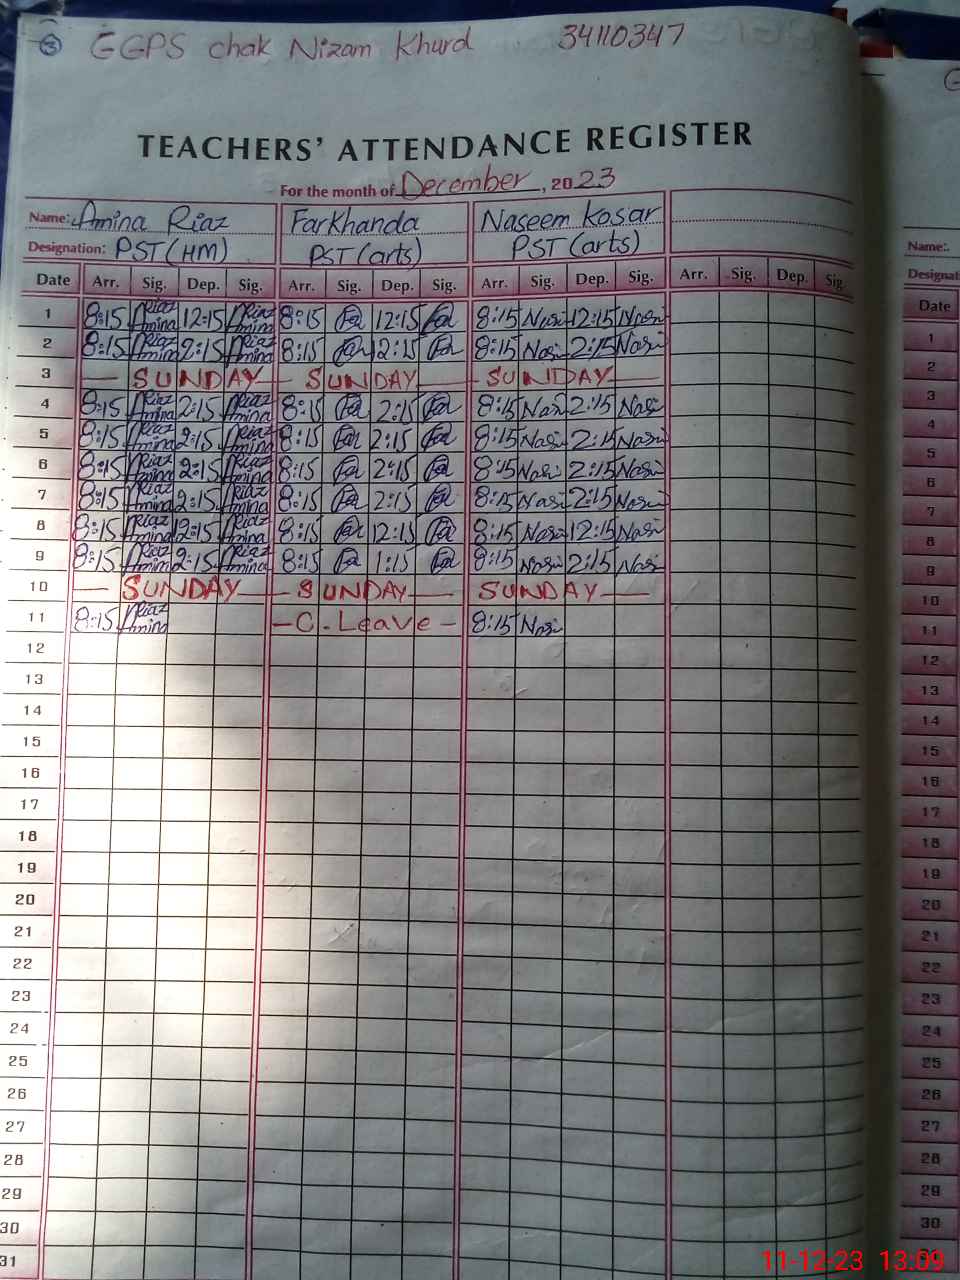 3 GGPS chak Nizam Khurd 34110347
TEACHERS' ATTENDANCE REGISTER
For the month of December, 2023
Name: Amina Riaz Farkhanda Naseem Kosar
Designation: PST (HM) PST (arts) PST (arts)
Date Arr. Sig. Dep. Sig. Arr. Sig. Dep. Sig. Arr. Sig. Dep. Sig. Arr. Sig. Dep. Sig.
1 8:15 Riaz Amina 12:15 Riaz Amina 8:15 Far 12:15 Far 8:15 Nasi 12:15 Nasi
2 8:15 Riaz Amina 2:15 Riaz Amina 8:15 Far 2:15 Far 8:15 Nasi 2:15 Nasi
3 — SUNDAY — SUNDAY — SUNDAY —
4 8:15 Riaz Amina 2:15 Riaz Amina 8:15 Far 2:15 Far 8:15 Nasi 2:15 Nasi
5 8:15 Riaz Amina 2:15 Riaz Amina 8:15 Far 2:15 Far 8:15 Nasi 2:15 Nasi
6 8:15 Riaz Amina 2:15 Riaz Amina 8:15 Far 2:15 Far 8:15 Nasi 2:15 Nasi
7 8:15 Riaz Amina 2:15 Riaz Amina 8:15 Far 2:15 Far 8:15 Nasi 2:15 Nasi
8 8:15 Riaz Amina 12:15 Riaz Amina 8:15 Far 12:15 Far 8:15 Nasi 12:15 Nasi
9 8:15 Riaz Amina 2:15 Riaz Amina 8:15 Far 1:15 Far 8:15 Nasi 2:15 Nasi
10 — SUNDAY — SUNDAY — SUNDAY —
11 8:15 Riaz Amina — C. Leave — 8:15 Nasi
12
13
14
15
16
17
18
19
20
21
22
23
24
25
26
27
28
29
30
31
G
Name:
Designat
Date
1
2
3
4
5
6
7
8
9
10
11
12
13
14
15
16
17
18
19
20
21
22
23
24
25
26
27
28
29
30
11-12-23 13:09